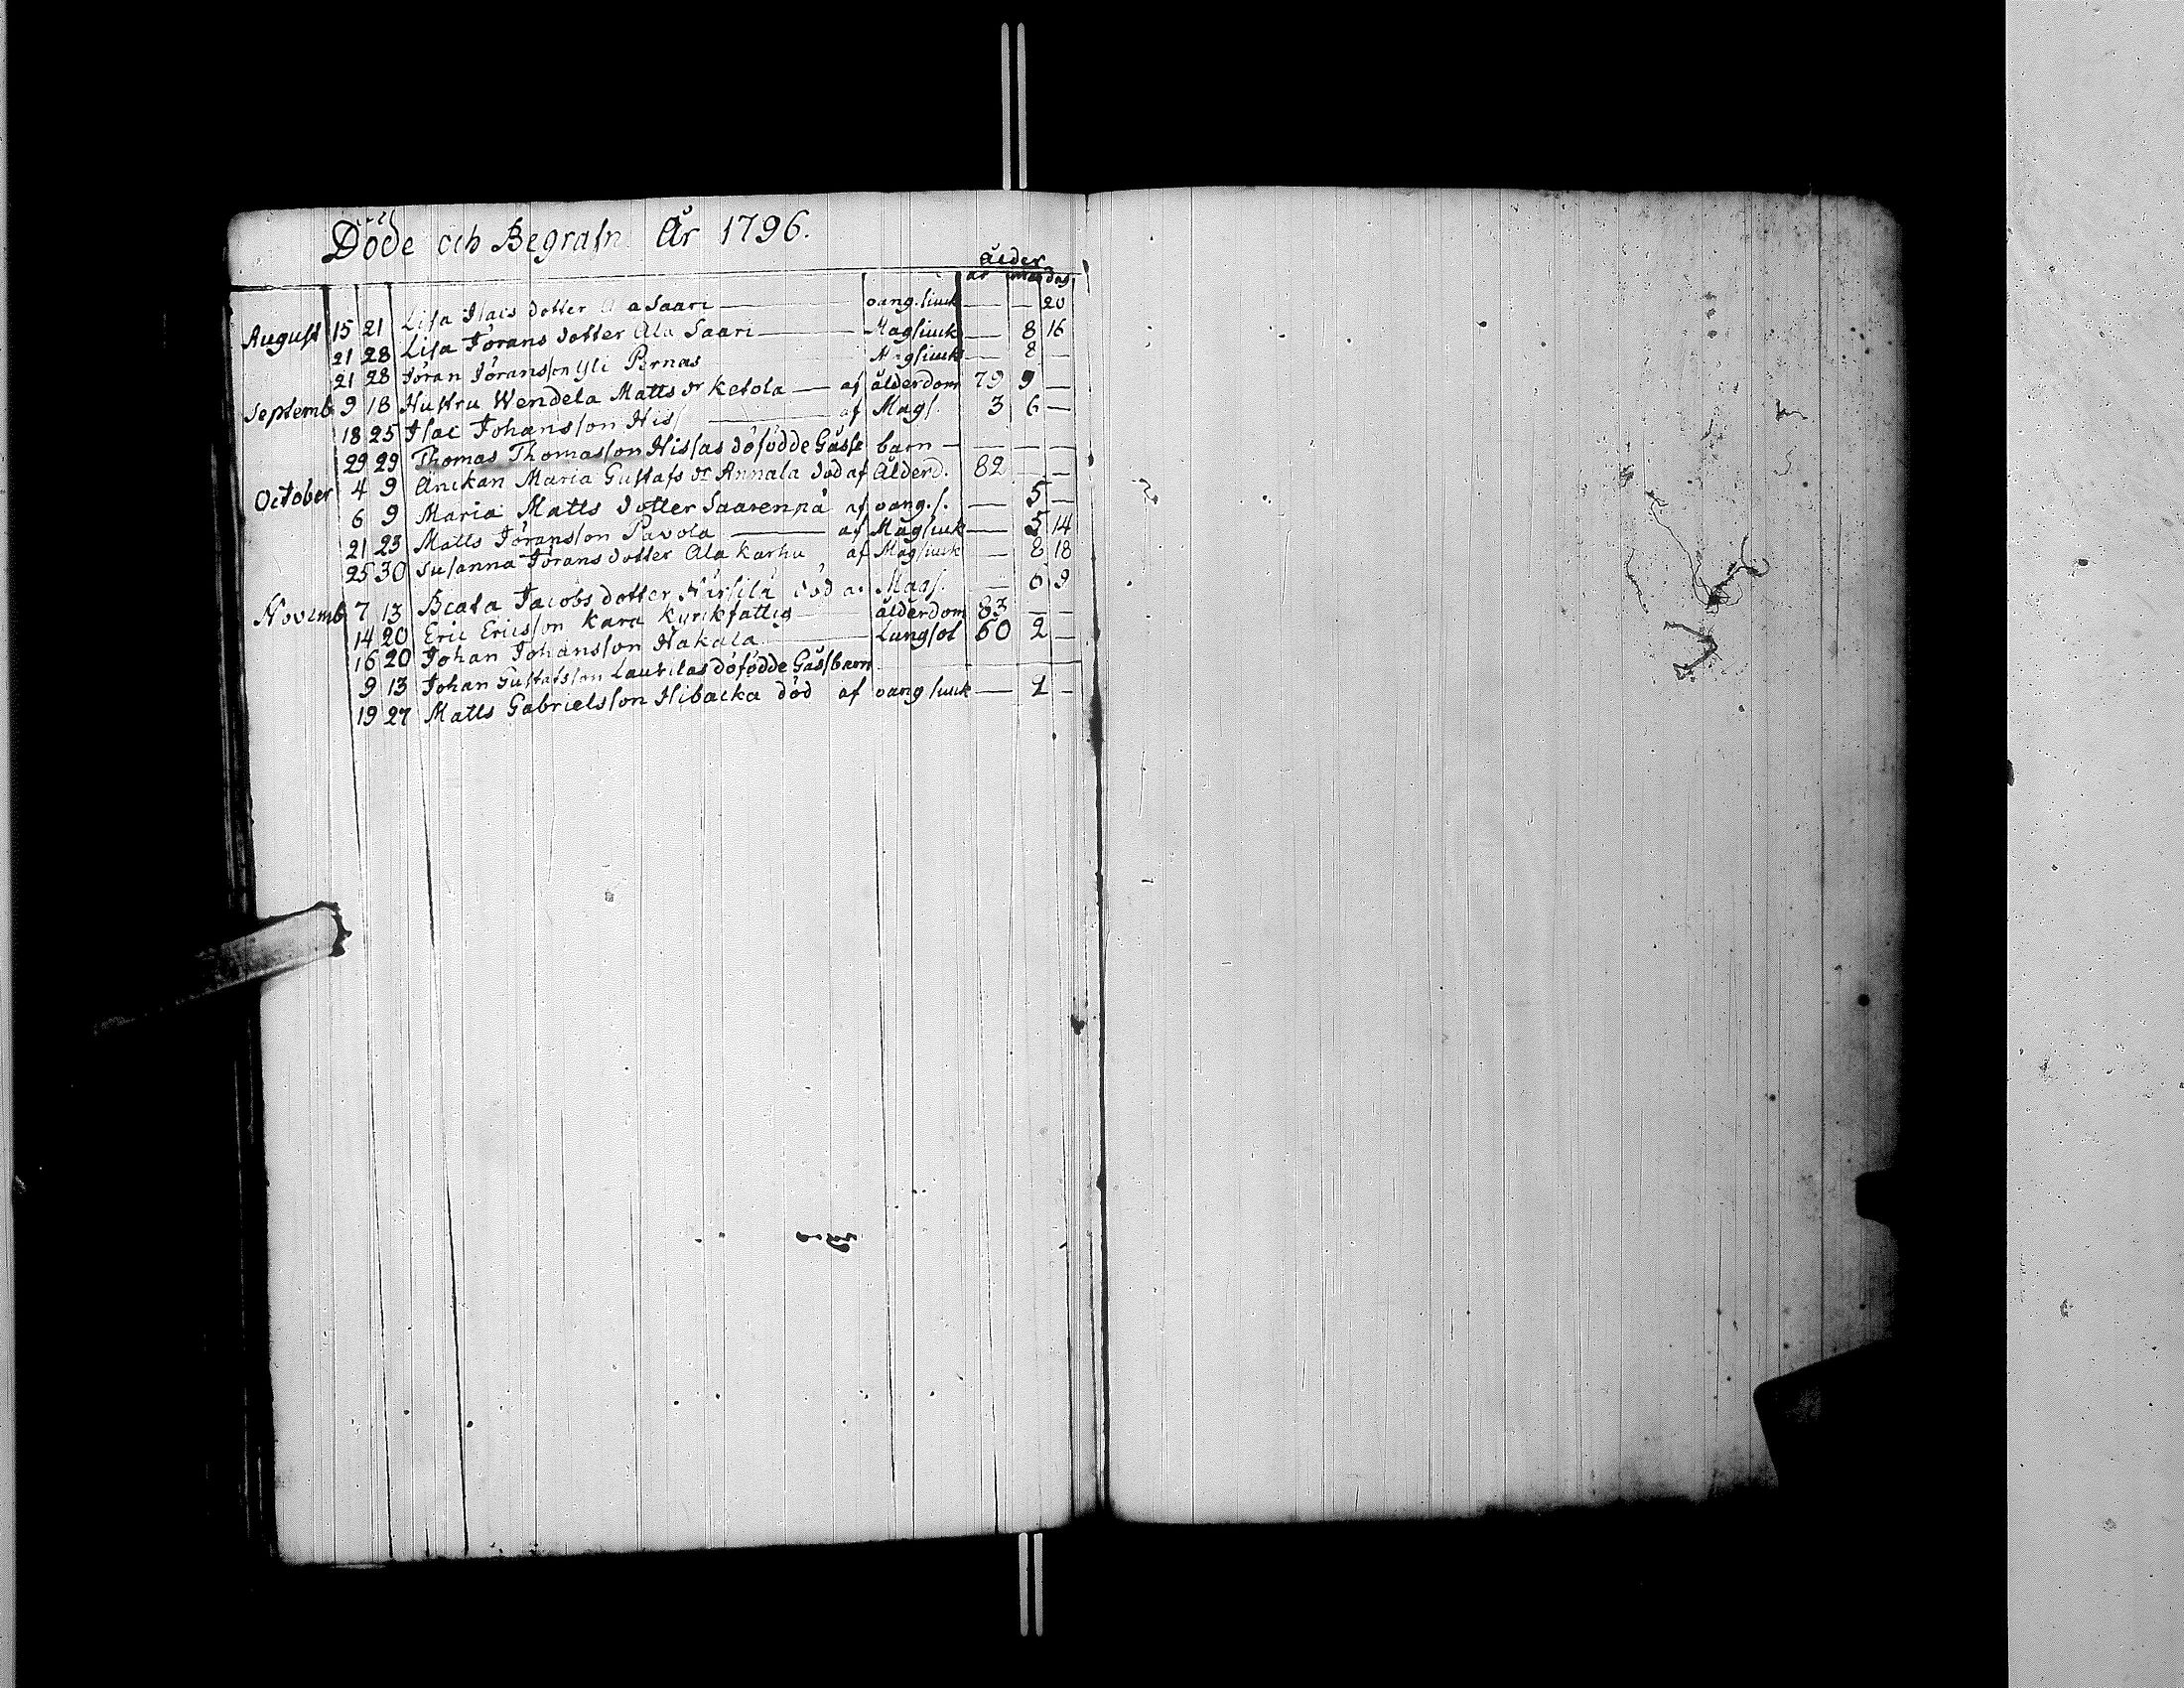 Döde och Begrafn År 1796.
ålder
år mån dag
August 15 21 Lisa Isacs dotter Ala Saari — oang.siuk — — 20
21 28 Lisa Jörans dotter Ala Saari — Magsiuk — 8 16
21 28 Jöran Jöransson Yli Pernas Magsiuk — 8 —
Septemb 9 18 Hustru Wendela Matts dr Ketola — af ålderdom 79 9 —
18 25 Isac Johansson Hiss — af Mags. 3 6 —
29 29 Thomas Thomasson Hissas döfödde Gåsse barn — — — —
October 4 9 Anikan Maria Gustafs dr Annala död af Ålderd. 82 — —
6 9 Maria Matts dotter Saarenpä af oang.s. — 5 —
21 23 Matts Jöransson Pavola — af Magsiuk — 5 14
25 30 Susanna Jörans dotter Ala Karhu af Magsiuk — 8 18
Novemb 7 13 Beata Jacobs dotter Nirsilä död af Mags. — 6 9
14 20 Eric Ericsson Kara Kyrkfattig — ålderdom 83 — —
16 20 Johan Johansson Hakala — Lungsot 60 2 —
9 13 Johan Gustafsson Laurilas döfödde Gåssbarn —
19 27 Matts Gabrielsson Hibacka död af oangsiuk — 1 —